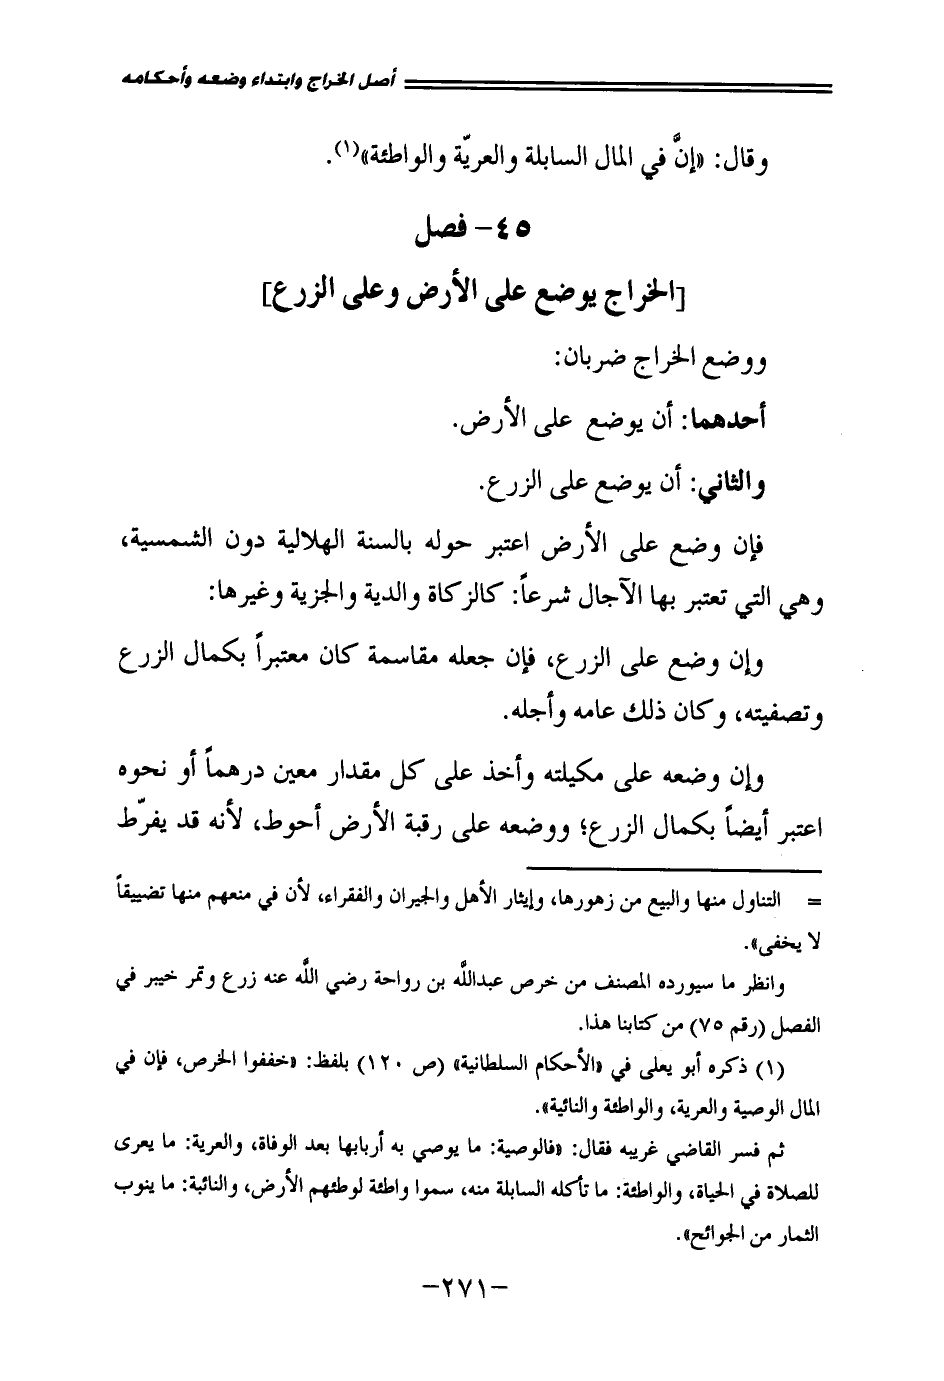 أصل الخراج وابتداء وضعه وأحكامه
وقال: «إنَّ في المال السابلة والعريّة والواطئة»(١).
٤٥ - فصل
[الخراج يوضع على الأرض وعلى الزرع]
ووضع الخراج ضربان:
أحدهما: أن يوضع على الأرض.
والثاني: أن يوضع على الزرع.
فإن وضع على الأرض اعتبر حوله بالسنة الهلالية دون الشمسية،
وهي التي تعتبر بها الآجال شرعاً: كالزكاة والدية والجزية وغيرها:
وإن وضع على الزرع، فإن جعله مقاسمة كان معتبراً بكمال الزرع
وتصفيته، وكان ذلك عامه وأجله.
وإن وضعه على مكيلته وأخذ على كل مقدار معين درهماً أو نحوه
اعتبر أيضاً بكمال الزرع؛ ووضعه على رقبة الأرض أحوط، لأنه قد يفرّط
= التناول منها والبيع من زهورها، وإيثار الأهل والجيران والفقراء، لأن في منعهم منها تضييقاً
لا يخفى».
وانظر ما سيورده المصنف من خرص عبداللَّه بن رواحة رضي اللَّه عنه زرع وتمر خيبر في
الفصل (رقم ٧٥) من كتابنا هذا.
(١) ذكره أبو يعلى في «الأحكام السلطانية» (ص ١٢٠) بلفظ: «خففوا الخرص، فإن في
المال الوصية والعرية، والواطئة والنائبة».
ثم فسر القاضي غريبه فقال: «فالوصية: ما يوصي به أربابها بعد الوفاة، والعرية: ما يعرى
للصلاة في الحياة، والواطئة: ما تأكله السابلة منه، سموا واطئة لوطئهم الأرض، والنائبة: ما ينوب
الثمار من الجوائح».
-٢٧١-